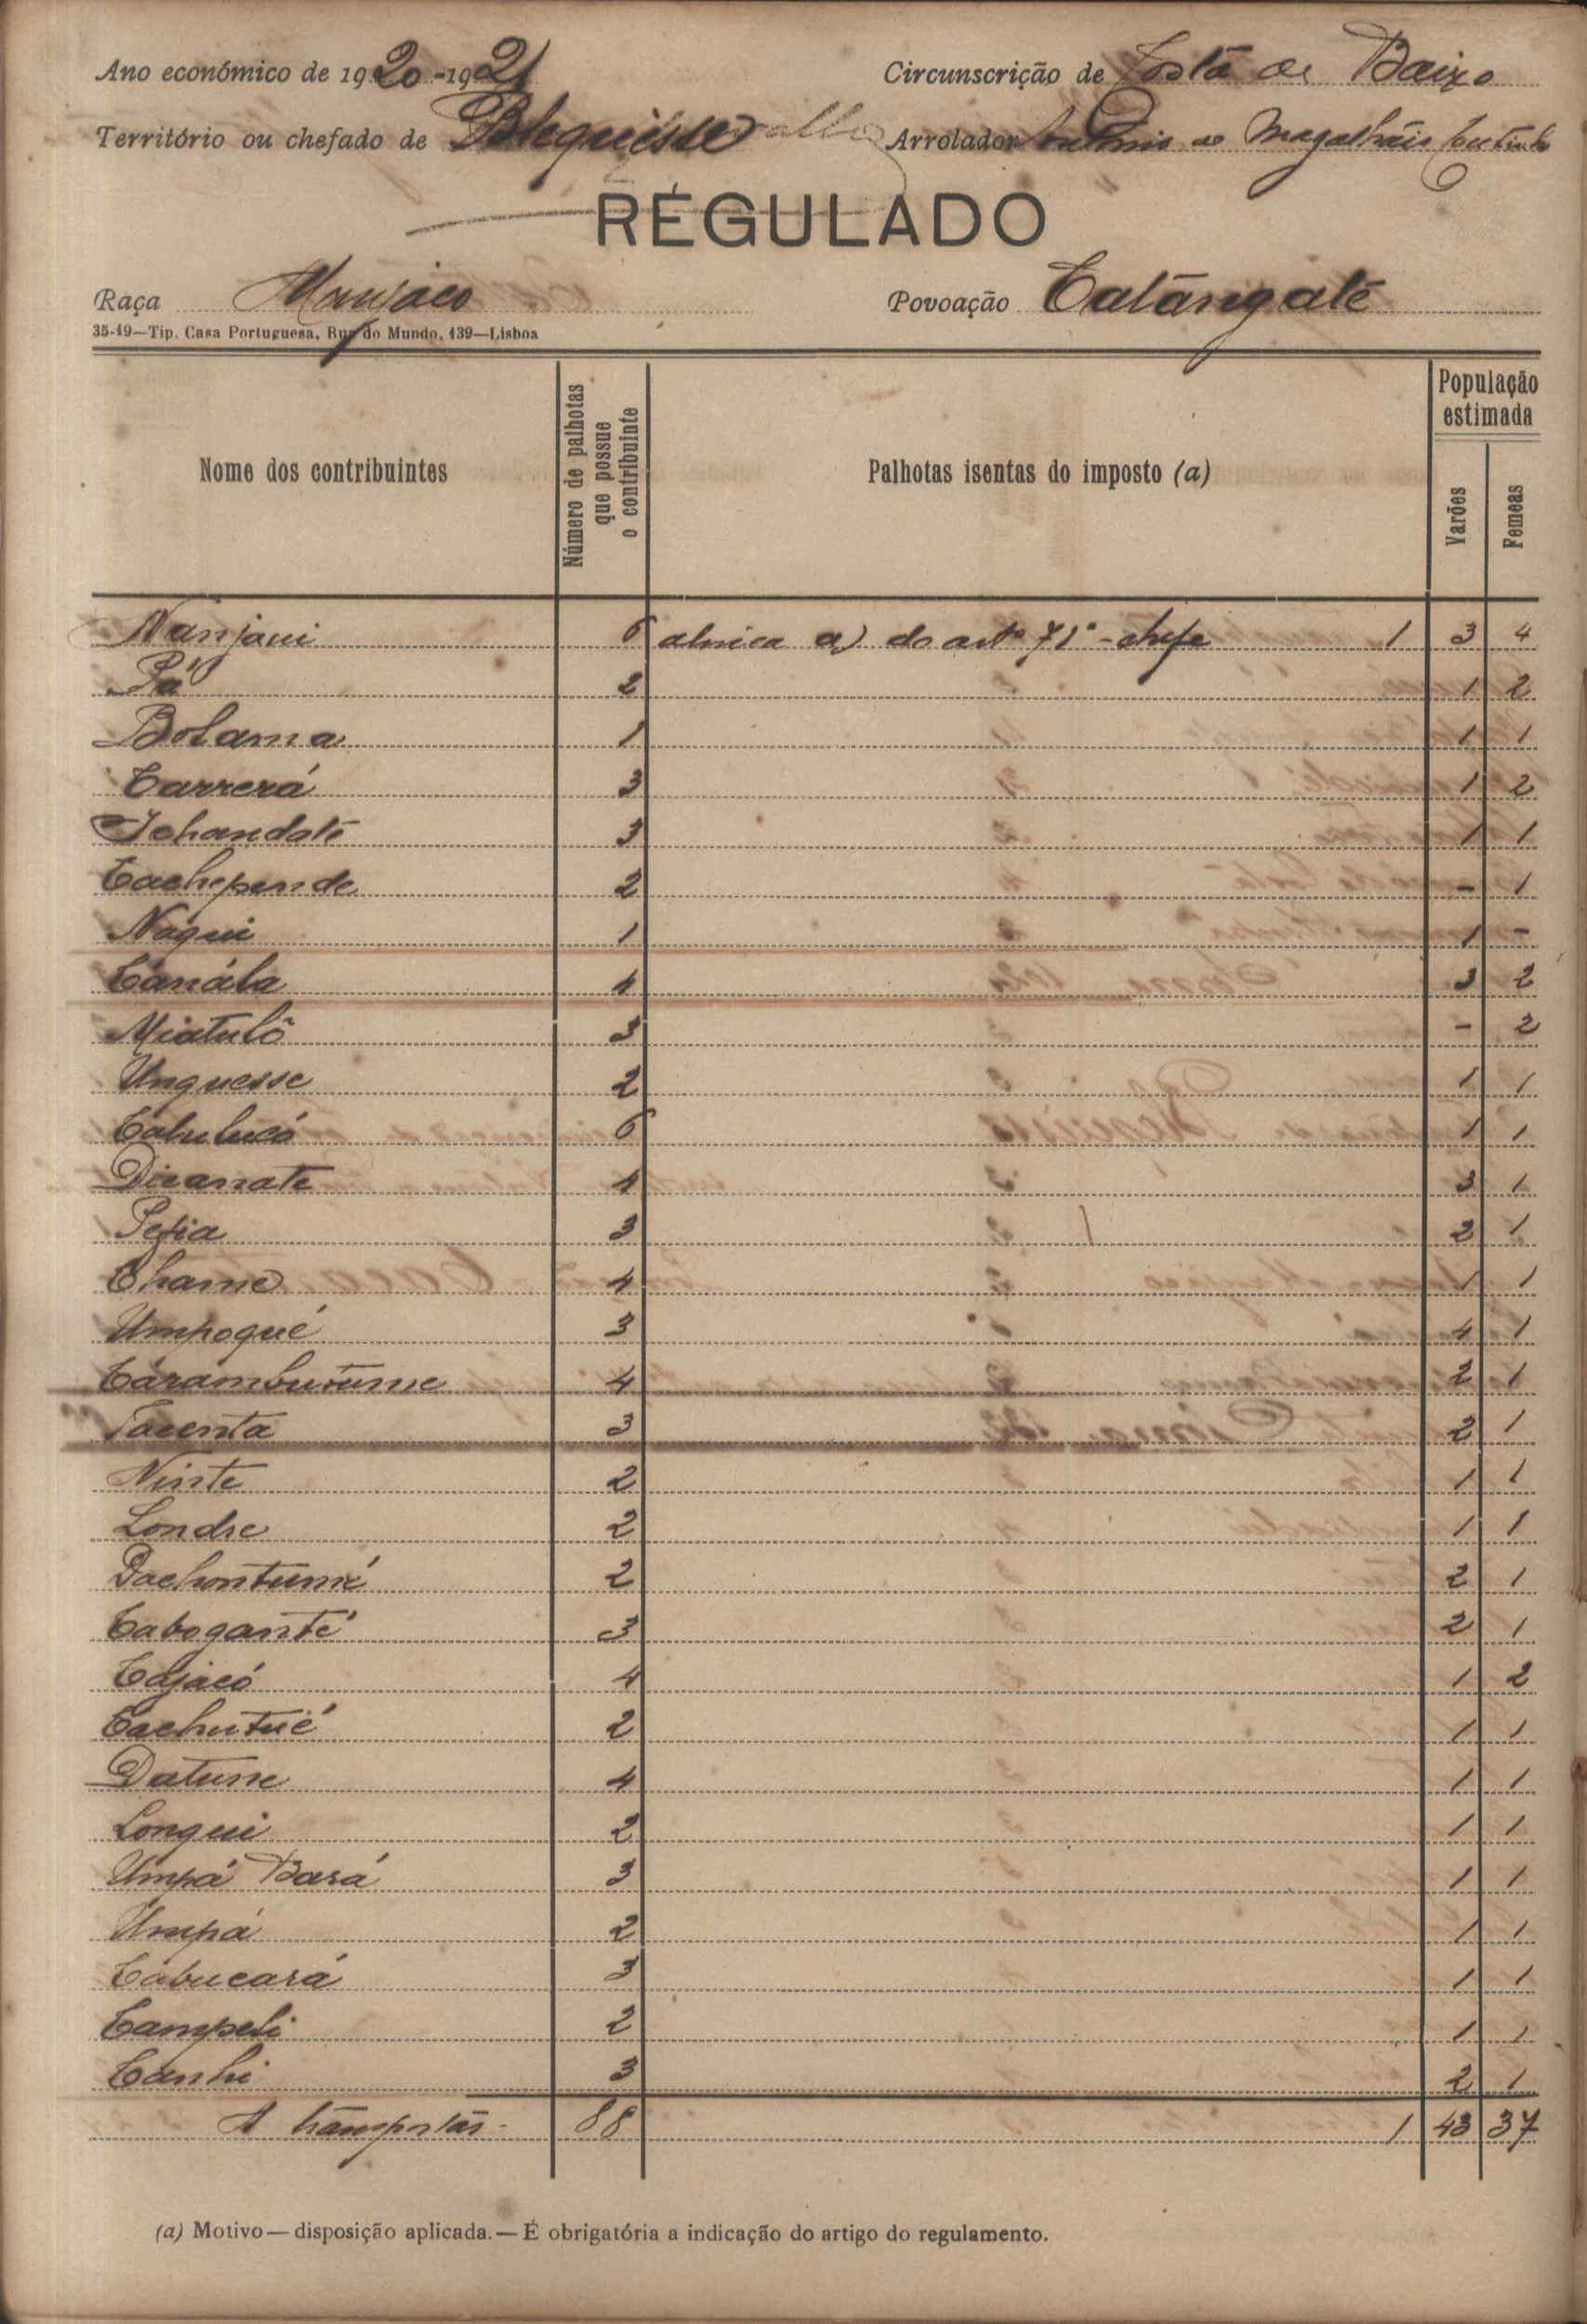 Ano económico de 1920-1921
Circunscrição de Costa de Baixo
Território ou chefado de Blequisse
Arrolador António de Magalhães Coutinho
RÉGULADO
Raça Manjaco
Povoação Calângate
35-19—Tip. Casa Portuguesa, Rua do Mundo, 139—Lisboa
Nome dos contribuintes
Número de palhotas que possue o contribuinte
Palhotas isentas do imposto (a)
População estimada
Varões
Femeas
Nanjaui 6 alnica a) do artº 71º - chefe 1 3 4
Pá 2 1 2
Bolama 1 1 1
Carrerá 3 1 2
Tchandaté 3 1 1
Cachepende 2 - 1
Naqui 1 1 -
Canála 4 3 2
Miatulô 3 - 2
Unquesse 2 1 1
Cabulucó 6 1 1
Dicanate 4 3 1
Pefia 3 2 1
Chame 4 1 1
Umpoqué 3 4 1
Carambutume 4 2 1
Tacenta 3 2 1
Ninte 2 1 1
Londre 2 1 1
Dachontumé 2 2 1
Cabogante 3 2 1
Cajacó 4 1 2
Cachutué 2 1 1
Datume 4 1 1
Longui 2 1 1
Umpá Bará 3 1 1
Umpá 2 1 1
Cabucará 3 1 1
Campeli 2 1 1
Canhi 3 2 1
A transportar 88 1 43 37
(a) Motivo—disposição aplicada.—É obrigatória a indicação do artigo do regulamento.